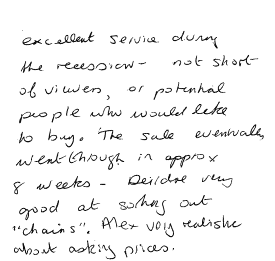 excellent service during
the recession - not short
of viewers, or potential
people who would like
to buy. The sale eventually
went through in approx
8 weeks - Deirdre very
good at sorting out
"chains". Alex very realistic
about asking prices.